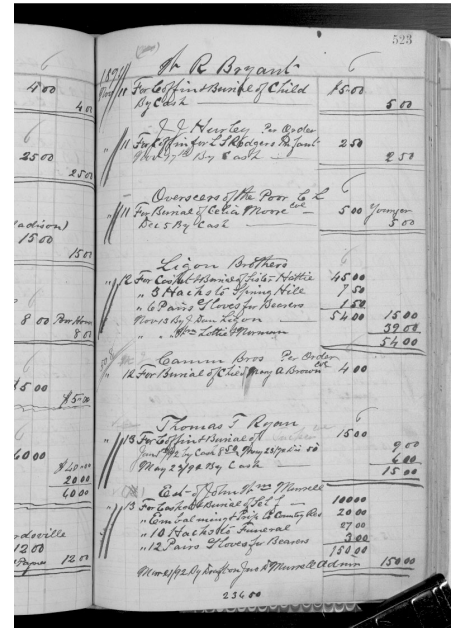 523
W R Bryant
1891
Nov 11 For Coffin & Burial of Child $5.00
By Cash 5.00
J. J. Hurley Per Order
11 For Coffin for L S Rodgers Infant 2 50
Nov 17th By Cash 2 50
Overseers of the Poor C. L
11 For Burial of Celia Moore col 5 00 Younger
Dec 5 By Cash 5 00
Ligon Brothers
12 For Casket & Burial of Sister Hattie 45 00
" 3 Hacks to Spring Hill 7 50
" 6 Pairs Gloves for Bearers 1 50
Nov 13 By J Dan Ligon 54 00 15 00
" " Mrs Lettie Mornum 39.00
54 00
Camm Bros Per Order
12 For Burial of Child Mary A Brown col 4 00
Thomas T Ryan
13 For Coffin & Burial of 15 00
by Cash May 9 00
May 23/92 By Cash 6 00
15 00
Est of John W Murrell
13 For Casket & Burial of Self 100 00
" Embalming & Trip to Country Res 20 00
" 10 Hacks to Funeral 27 00
" 12 Pairs Gloves for Bearers 3 00
150 00
By Draft on Jno D Murrell Admin 150.00
236 00
4 00
4 00
25 00
25 00
Madison)
15 00
15 00
8 00
8 00
$5 00
$5 00
60 00
$40.00
20 00
60 00
rdsville
12 00
12 00